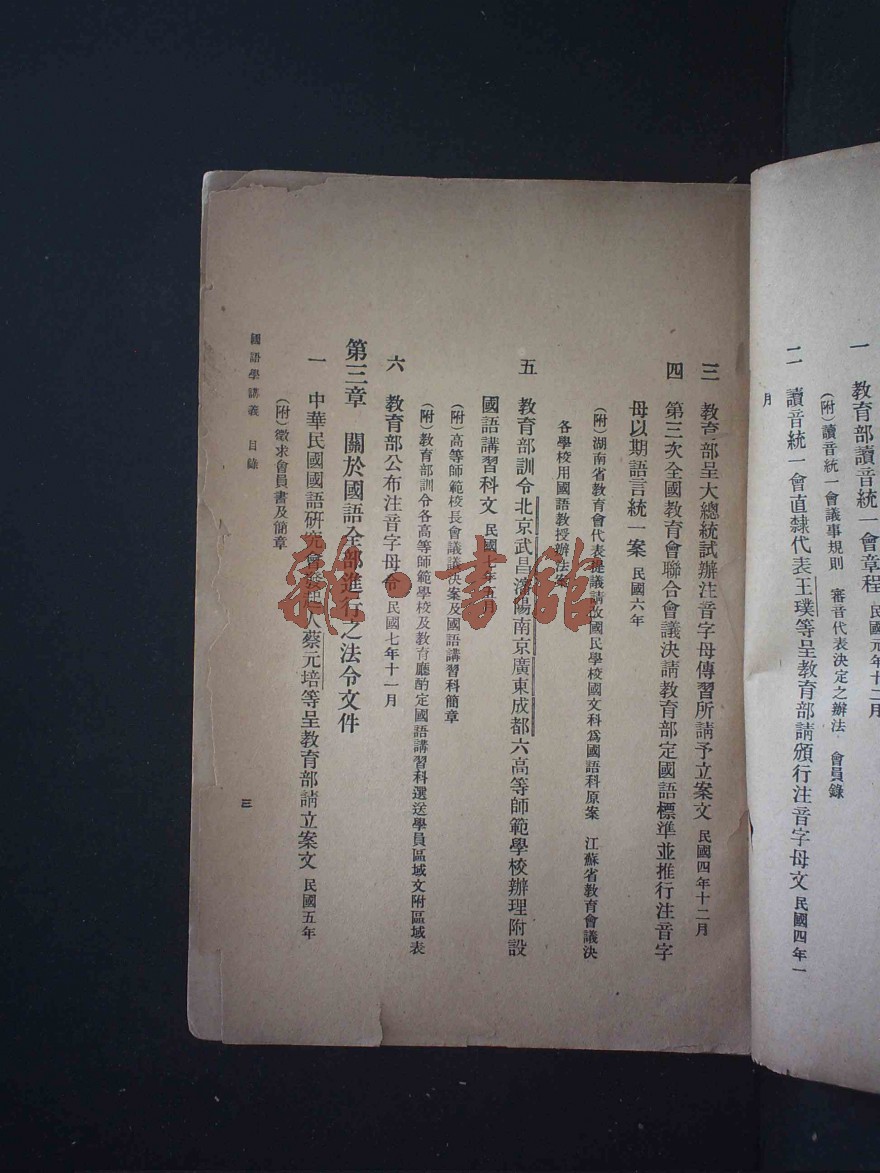 一　教育部讀音統一會章程　民國元年十二月
（附）讀音統一會議事規則　審音代表決定之辦法　會員錄
二　讀音統一會直隸代表王璞等呈教育部請頒行注音字母文　民國四年一
月
三　教育部呈大總統試辦注音字母傳習所請予立案文　民國四年十二月
四　第三次全國教育會聯合會議決請教育部定國語標準並推行注音字
母以期語言統一案　民國六年
（附）湖南省教育會代表提議請改國民學校國文科爲國語科原案　江蘇省教育會議決
各學校用國語教授辦法案
五　教育部訓令北京武昌瀋陽南京廣東成都六高等師範學校辦理附設
國語講習科文　民國七年五月
（附）高等師範校長會議議決案及國語講習科簡章
（附）教育部訓令各高等師範學校及教育廳酌定國語講習科選送學員區域文附區域表
六　教育部公布注音字母令　民國七年十一月
第三章　關於國語全部進行之法令文件
一　中華民國國語研究會發起人蔡元培等呈教育部請立案文　民國五年
（附）徵求會員書及簡章
國語學講義　目錄
三
雜·書館